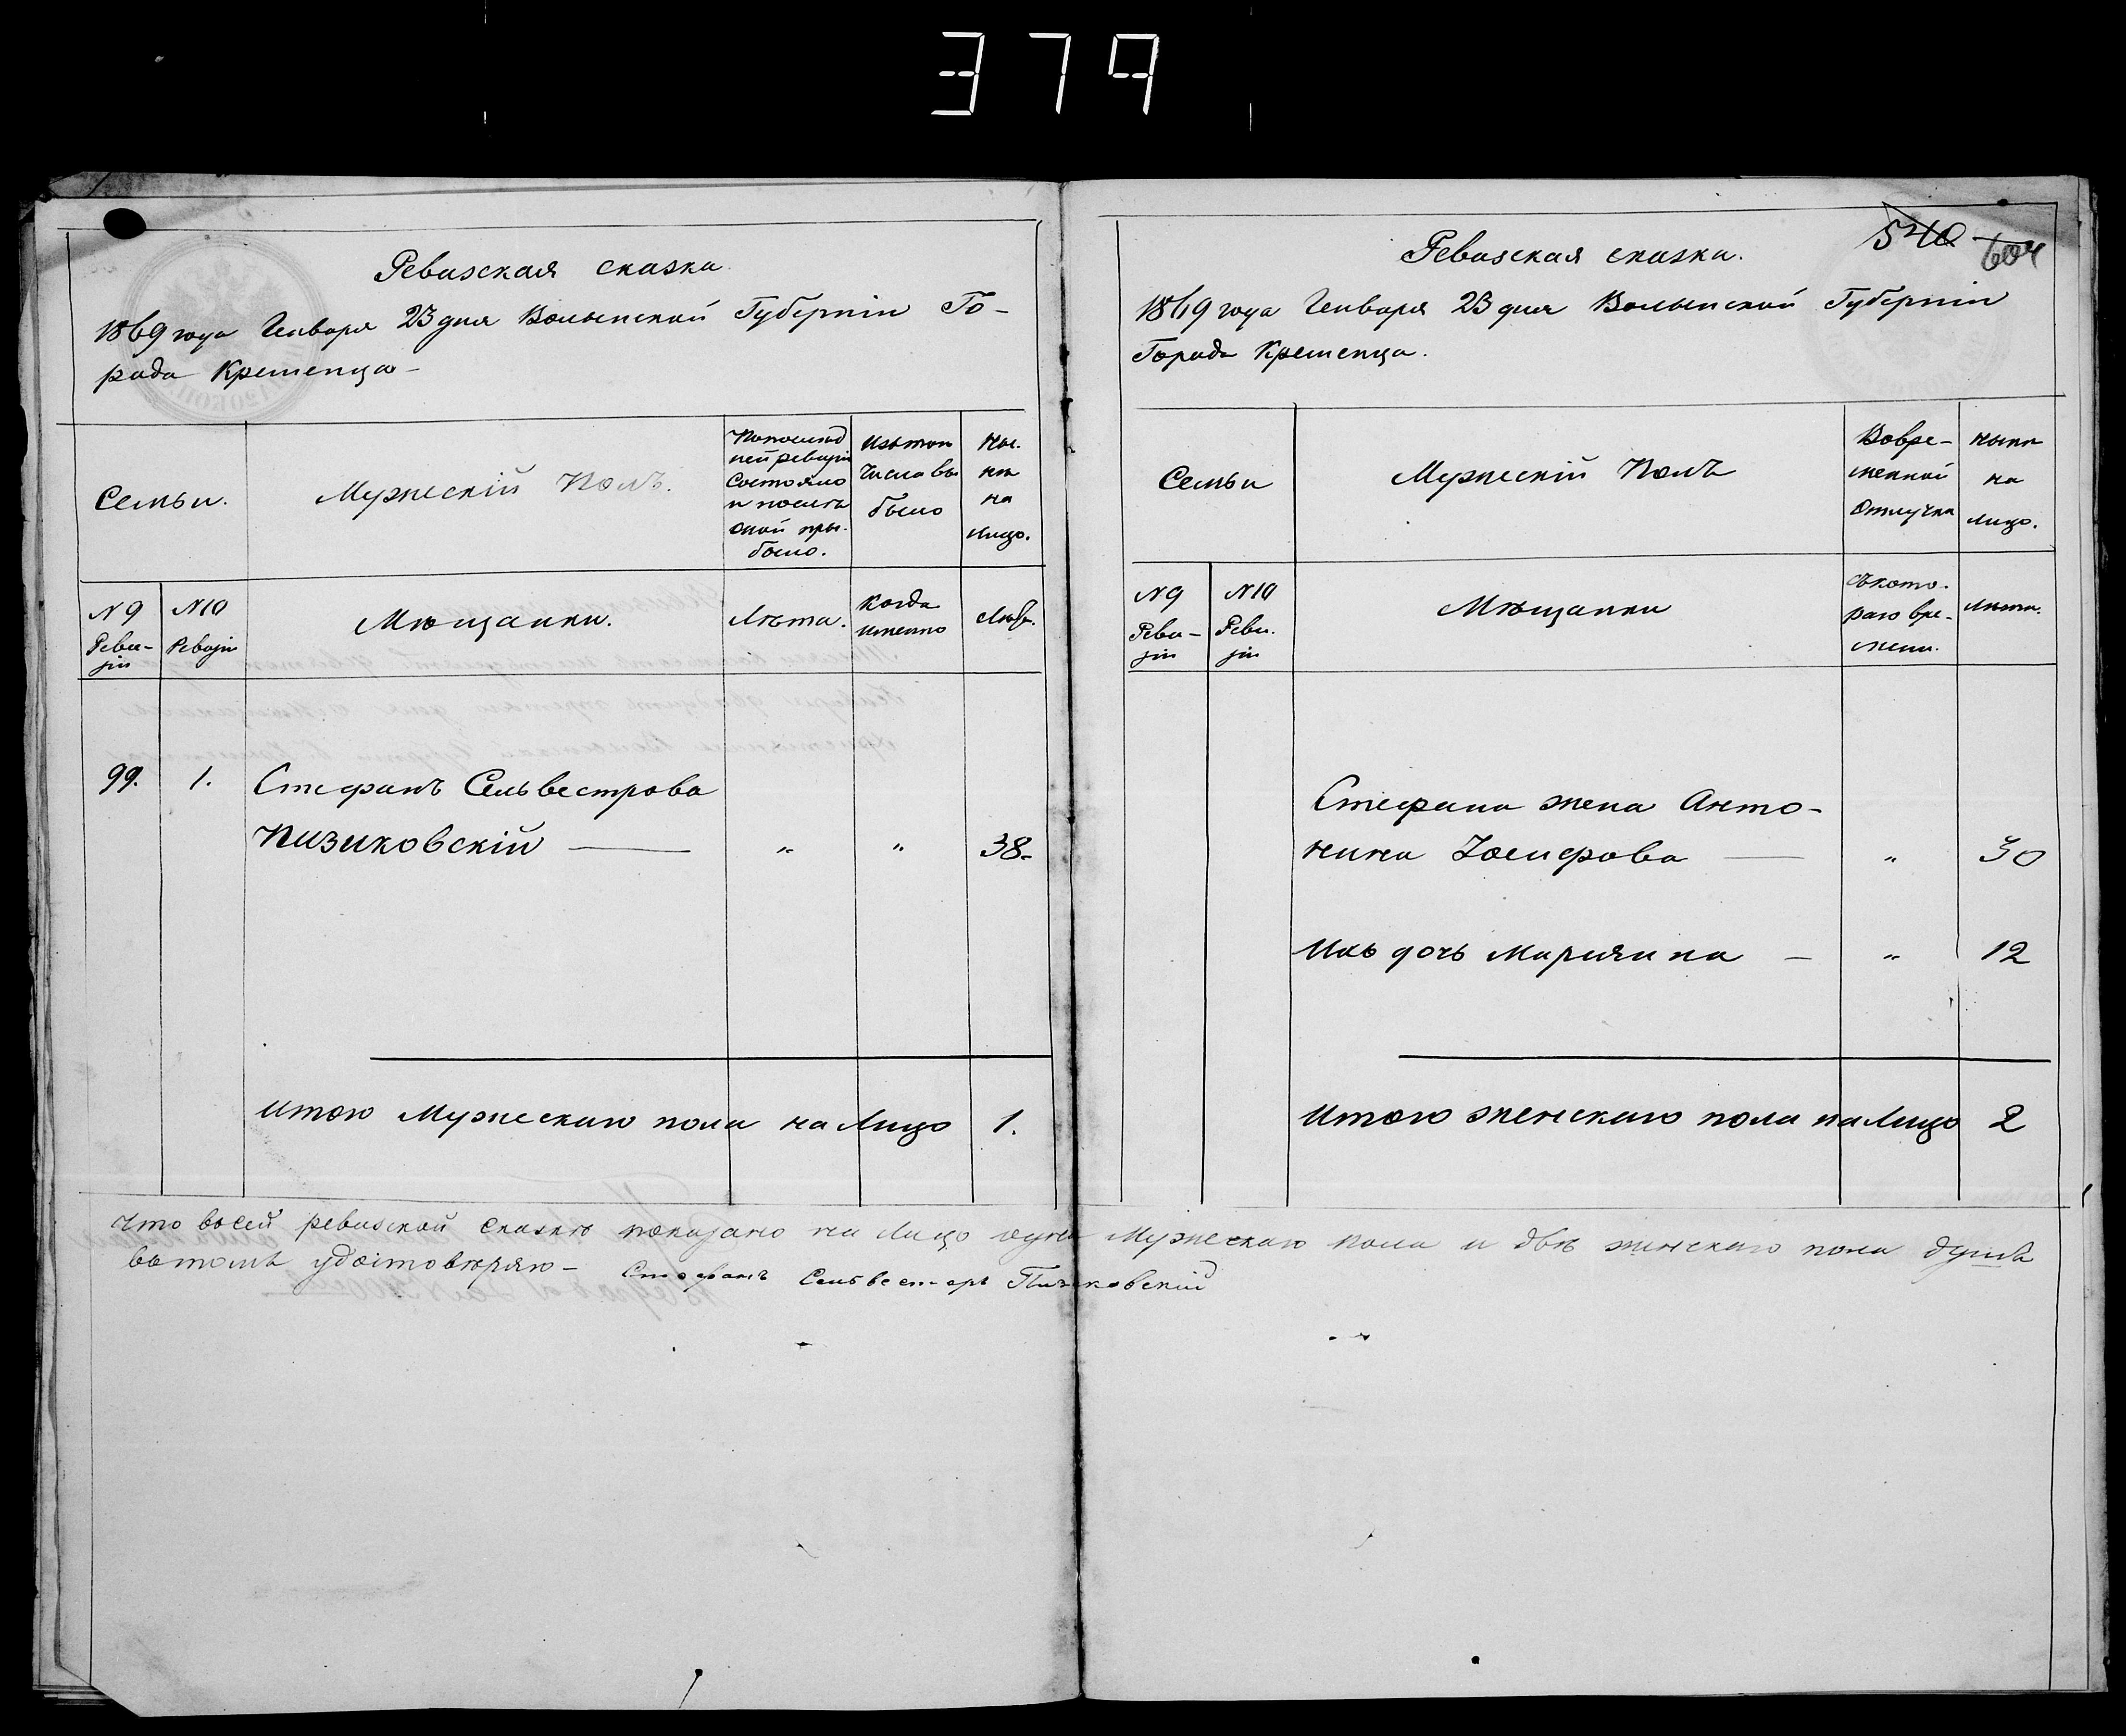 379
Ревизская сказка.
1869 года Генваря 23 дня Волынской Губерніи Го-
рода Кременца -
Семьи.
Мужескій Полъ.
Попослед
ней ревизіи
Состояло
и после
оной при-
было.
Изътого
Числа вы
было
Ны-
не
на
лицо.
N 9
Реви-
зіи
N 10
Ревизіи
Мещанки.
Лета.
Когда
именно
Лета.
99.
1.
Стефанъ Сельвестрова
Пизиковскій —
"
"
38.
Итого Мужескаго пола на Лицо 1.
540
604
Ревизская сказка.
1869 года Генваря 23 дня Волынской Губерніи
Города Кременца.
Семьи
Мужескій Полъ
Вовре-
менной
Отлучке
ныне
на
лицо.
N 9
Реви-
зіи
N 10
Реви-
зіи
Мещанки
Съкото-
раго вре-
мени.
Лета.
Стефана жена Анто-
нина Іосифова —
"
30
Ихъ дочь Мариянна —
"
12
Итого женскаго пола на Лицо 2
Что въсей ревизской Сказке показано на Лицо одна Мужескаго пола и две женскаго пола душъ
вътомъ удостоверяю - Стефанъ Сельвестеръ Пизиковскій